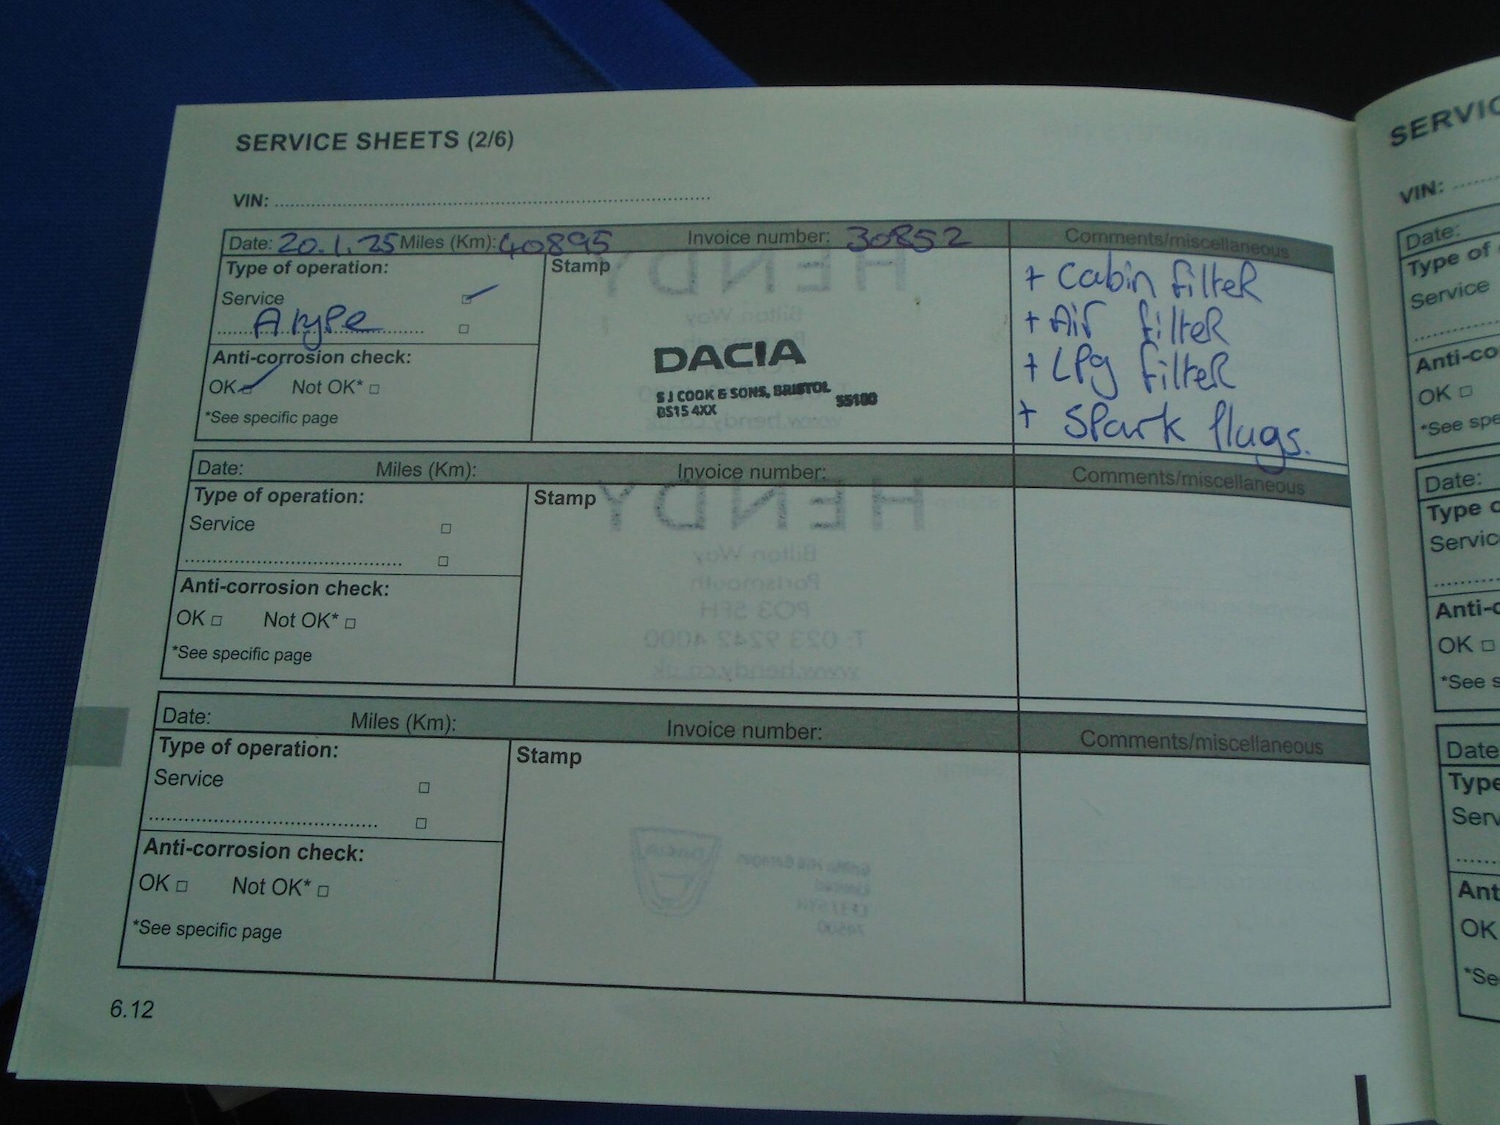 SERVICE SHEETS (2/6)
VIN:
Date: 20.1.25 Miles (Km): 40895 Invoice number: 30852 Comments/miscellaneous
Type of operation:
Service
A type
Anti-corrosion check:
OK Not OK*
*See specific page
Stamp
DACIA
S J COOK & SONS, BRISTOL
BS15 4XX 55100
+ Cabin filter
+ Air filter
+ LPg filter
+ Spark plugs.
Date: Miles (Km): Invoice number: Comments/miscellaneous
Type of operation:
Service
Anti-corrosion check:
OK Not OK*
*See specific page
Stamp
HENDY
Bilton Way
Portsmouth
PO3 5FH
T. 023 9242 4000
www.hendy.co.uk
Date: Miles (Km): Invoice number: Comments/miscellaneous
Type of operation:
Service
Anti-corrosion check:
OK Not OK*
*See specific page
Stamp
6.12
SERVIC
VIN:
Date:
Type of
Service
Anti-co
OK
*See spe
Date:
Type o
Servic
Anti-c
OK
*See s
Date
Type
Serv
Ant
OK
*Se